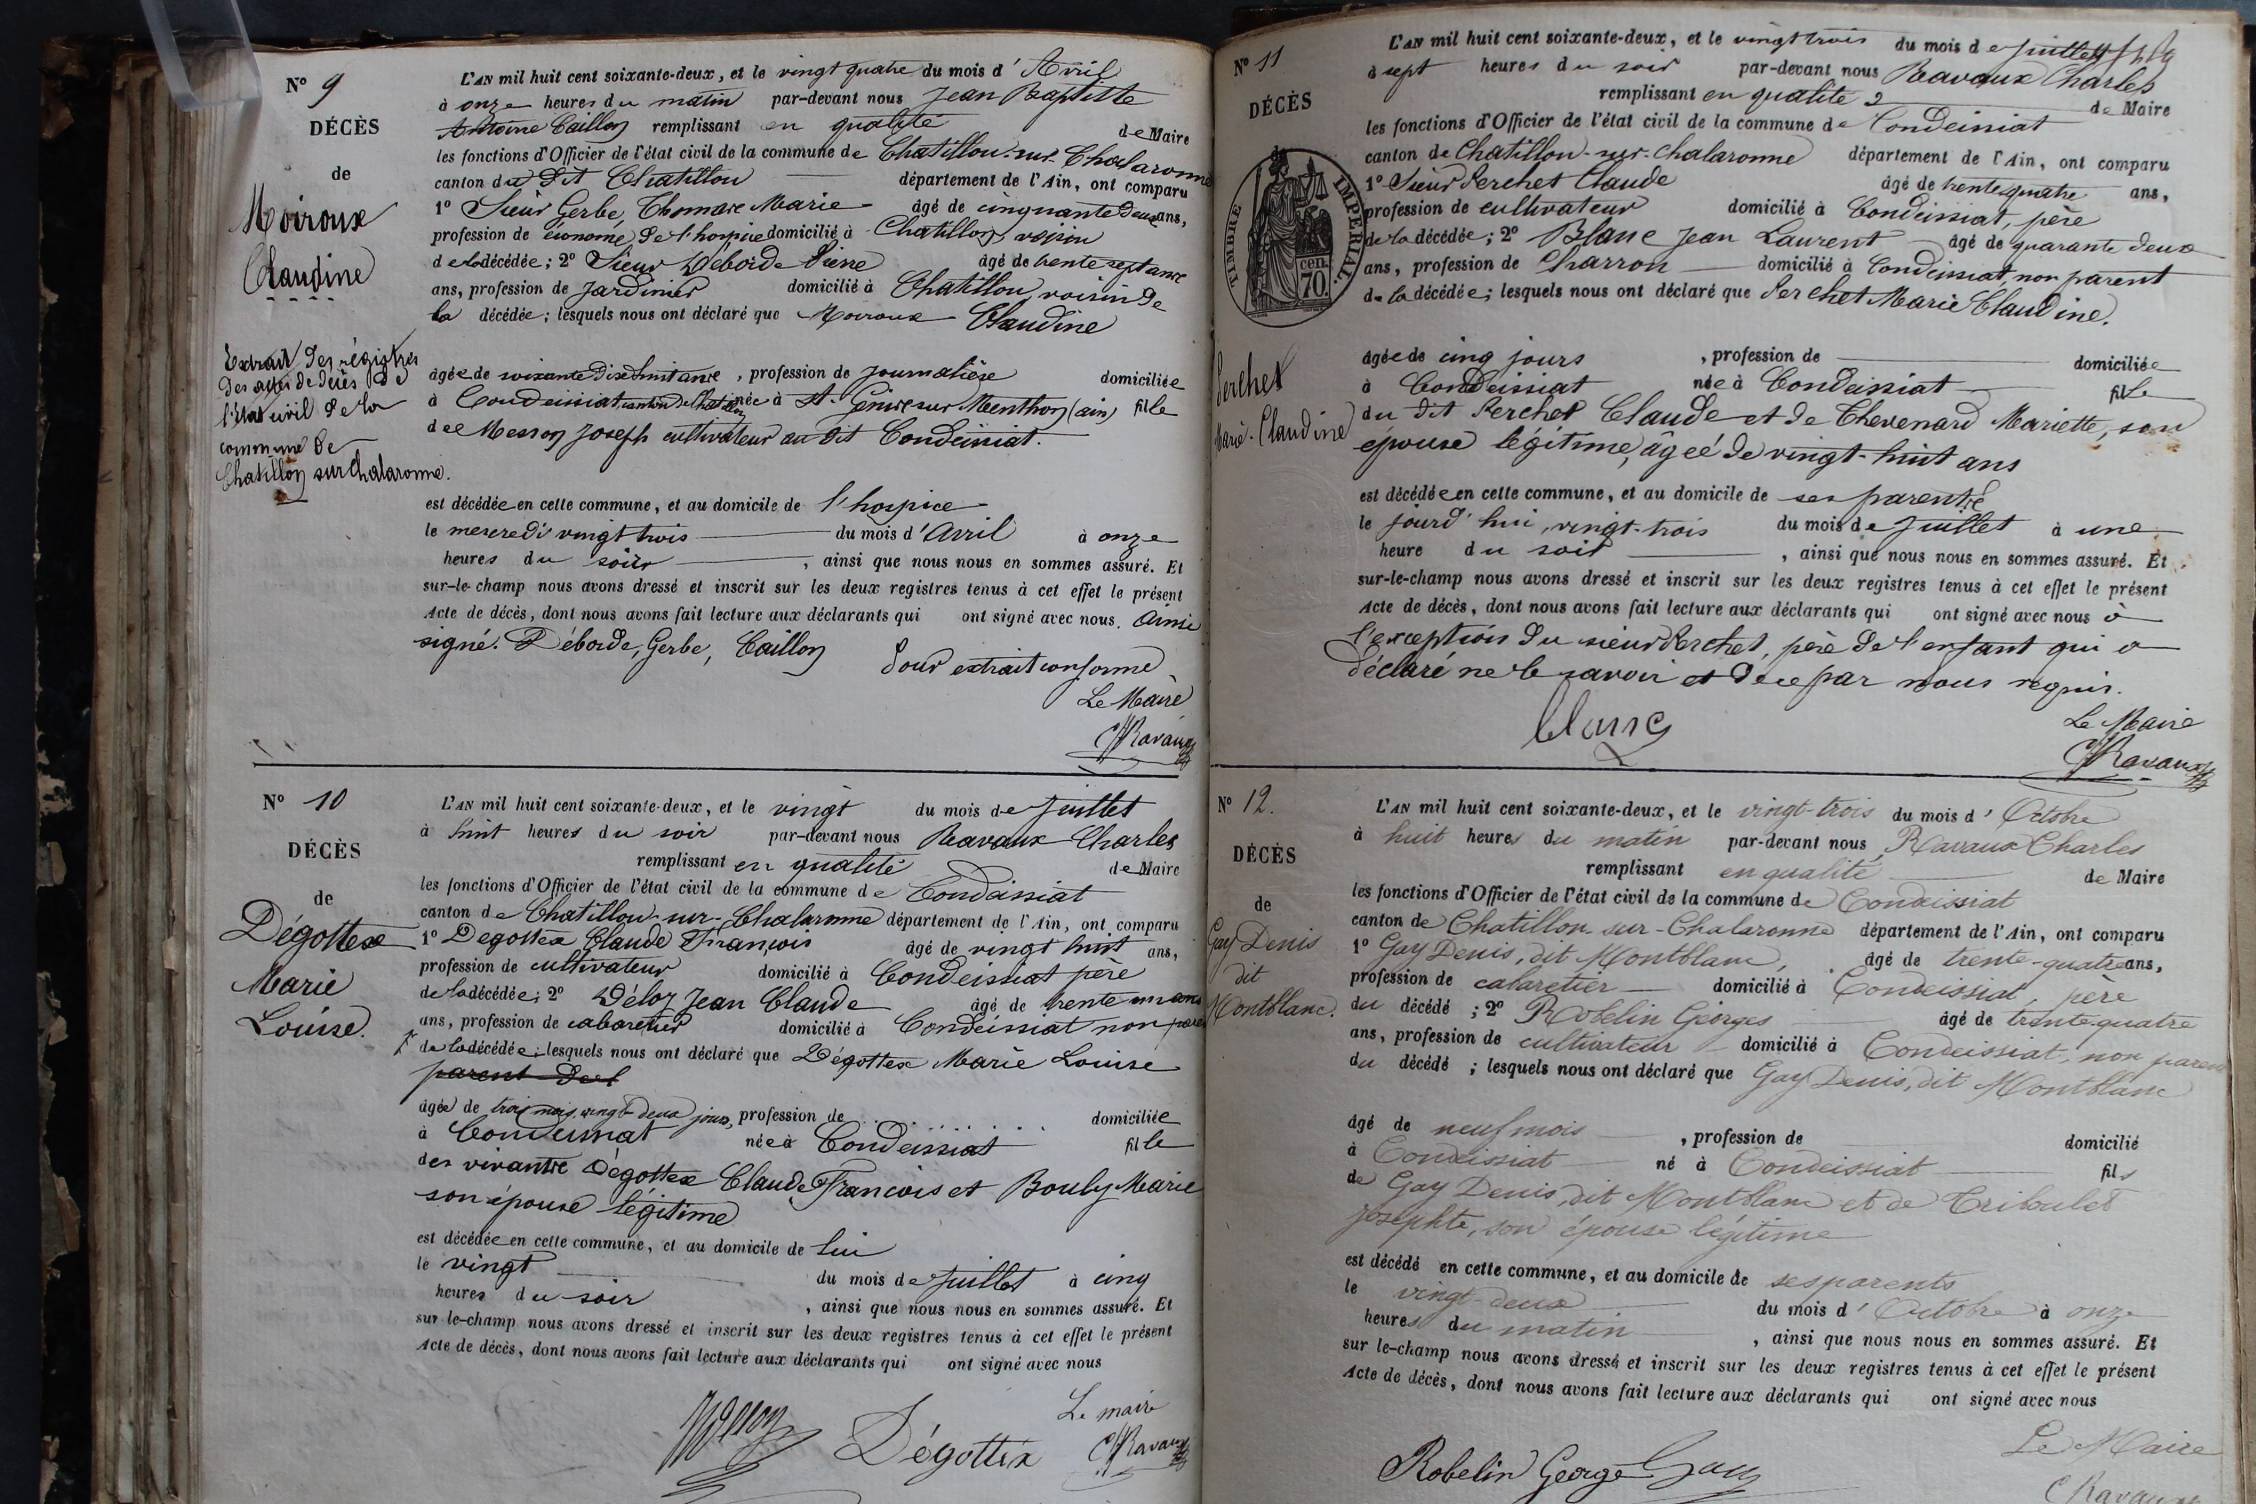 N° 9
DÉCÈS
de
Moiroux
Claudine
Extrait des régistres
des actes de décès de
l'état civil de la
commune de
Chatillon sur Chalaronne.
L'AN mil huit cent soixante-deux, et le vingt quatre du mois d'Avril
à onze heures du matin par-devant nous Jean Baptiste
Antoine Caillon remplissant en qualité de Maire
les fonctions d'Officier de l'état civil de la commune de Chatillon-sur-Chalaronne
canton du dit Chatillon département de l'Ain, ont comparu
1° Sieur Gerbe, Thomase Marie âgé de cinquante deux ans,
profession de économe de l'hospice domicilié à Chatillon, voisin
de la décédée; 2° Sieur Déborde Pierre âgé de trente sept ans
ans, profession de Jardinier domicilié à Chatillon, voisin de
la décédée; lesquels nous ont déclaré que Moiroux Claudine
âgée de soixante dix huit ans, profession de journalière domiciliée
à Condeissiat canton de Chatillon née à St. Genis sur Menthon (ain) fille
de Messon Joseph cultivateur au dit Condeissiat.
est décédée en cette commune, et au domicile de l'hospice
le mercredi vingt trois du mois d'Avril à onze
heures du soir, ainsi que nous nous en sommes assuré. Et
sur-le-champ nous avons dressé et inscrit sur les deux registres tenus à cet effet le présent
Acte de décès, dont nous avons fait lecture aux déclarants qui ont signé avec nous. Ainsi
signé. Déborde, Gerbe, Caillon
Pour extrait conforme
Le Maire
CRavaux
N° 10
DÉCÈS
de
Dégottex
Marie
Louise.
L'AN mil huit cent soixante-deux, et le vingt du mois de Juillet
à huit heures du soir par-devant nous Ravaux Charles
remplissant en qualité de Maire
les fonctions d'Officier de l'état civil de la commune de Condeissiat
canton de Chatillon-sur-Chalaronne département de l'Ain, ont comparu
1° Degottex Claude François âgé de vingt huit ans,
profession de cultivateur domicilié à Condeissiat père
de la décédée; 2° Déloz Jean Claude âgé de trente un ans
ans, profession de cabaretier domicilié à Condeissiat non parent
de la décédée; lesquels nous ont déclaré que Dégottex Marie Louise
parent de l
âgée de trois mois vingt-deux jours, profession de domiciliée
à Condeissiat née à Condeissiat fille
des vivants Dégottex Claude François et Bouly Marie
son épouse légitime
est décédée en cette commune, et au domicile de lui
le vingt du mois de Juillet à cinq
heures du soir, ainsi que nous nous en sommes assuré. Et
sur le-champ nous avons dressé et inscrit sur les deux registres tenus à cet effet le présent
Acte de décès, dont nous avons fait lecture aux déclarants qui ont signé avec nous
Le maire
Dégottex CRavaux
N° 11
DÉCÈS
de
TIMBRE IMPÉRIAL.
cen.
70.
Perchet
Marie-Claudine
L'AN mil huit cent soixante-deux, et le vingt trois du mois de Juillet
à sept heures du soir par-devant nous Ravaux Charles
remplissant en qualité de Maire
les fonctions d'Officier de l'état civil de la commune de Condeissiat
canton de Chatillon-sur-Chalaronne département de l'Ain, ont comparu
1° Sieur Perchet Claude âgé de trente quatre ans,
profession de cultivateur domicilié à Condeissiat, père
de la décédée; 2° Blanc Jean Laurent âgé de quarante deux
ans, profession de Charron domicilié à Condeissiat, non parent
de la décédée; lesquels nous ont déclaré que Perchet Marie Claudine.
âgée de cinq jours, profession de domiciliée
à Condeissiat née à Condeissiat fille
du dit Perchet Claude et de Thevenard Mariette, son
épouse légitime, âgée de vingt-huit ans
est décédée en cette commune, et au domicile de ses parents
le jourd'hui, vingt-trois du mois de Juillet à une
heure du soir, ainsi que nous nous en sommes assuré. Et
sur-le-champ nous avons dressé et inscrit sur les deux registres tenus à cet effet le présent
Acte de décès, dont nous avons fait lecture aux déclarants qui ont signé avec nous à
l'exception du sieur Perchet, père de l'enfant qui a
déclaré ne le savoir et de ce par nous requis.
Blanc
Le Maire
CRavaux
N° 12.
DÉCÈS
de
Gay Denis
dit
Montblanc.
L'AN mil huit cent soixante-deux, et le vingt-trois du mois d'Octobre
à huit heures du matin par-devant nous Ravaux Charles
remplissant en qualité de Maire
les fonctions d'Officier de l'état civil de la commune de Condeissiat
canton de Chatillon sur-Chalaronne département de l'Ain, ont comparu
1° Gay Denis, dit Montblanc, âgé de trente-quatre ans,
profession de cabaretier domicilié à Condeissiat, père
du décédé; 2° Robelin Georges âgé de trente quatre
ans, profession de cultivateur domicilié à Condeissiat, non parent
du décédé; lesquels nous ont déclaré que Gay Denis, dit Montblanc
âgé de neuf mois, profession de domicilié
à Condeissiat né à Condeissiat fils
de Gay Denis, dit Montblanc et de Triboulet
Josephte, son épouse légitime
est décédé en cette commune, et au domicile de ses parents
le vingt-deux du mois d'Octobre à onze
heures du matin, ainsi que nous nous en sommes assuré. Et
sur le-champ nous avons dressé et inscrit sur les deux registres tenus à cet effet le présent
Acte de décès, dont nous avons fait lecture aux déclarants qui ont signé avec nous
Le Maire
Robelin George Gay CRavaux